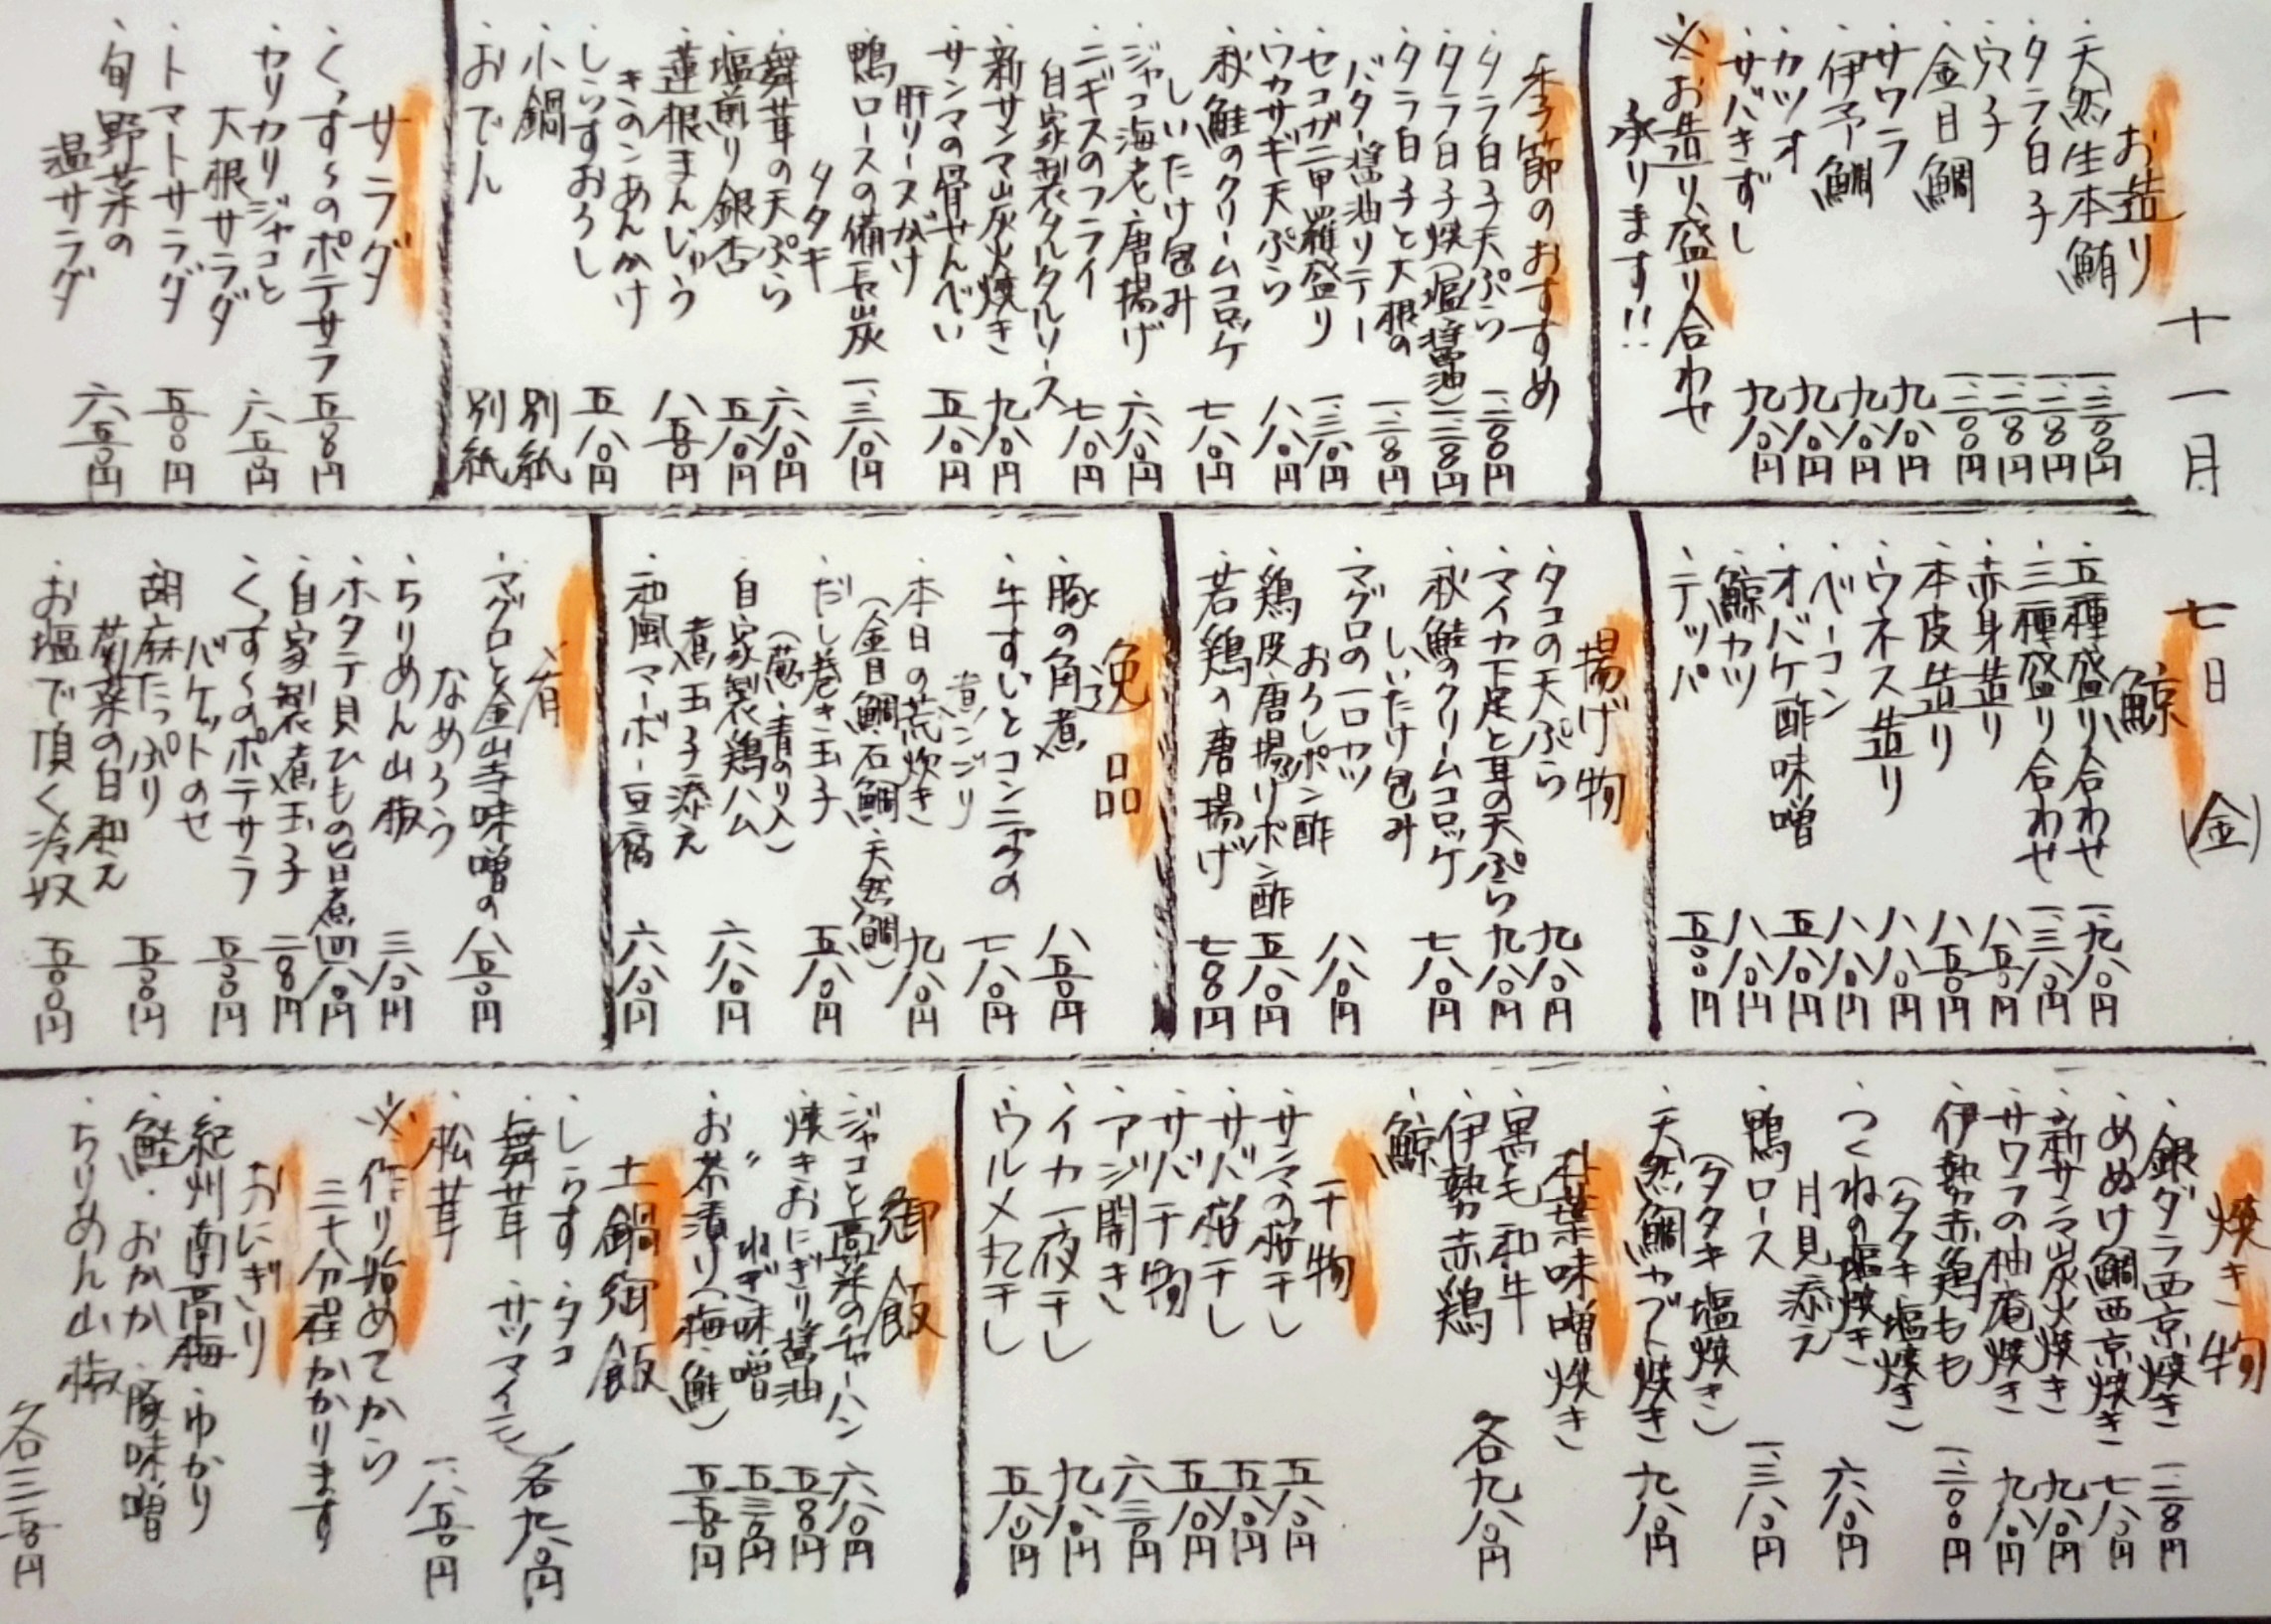 十一月
七日
(金)
お造り
・天然生本鮪 一、三〇〇円
・タラ白子
・穴子
・金目鯛
・サワラ 九八〇円
・伊予鯛 九八〇円
・カツオ 九八〇円
・サバきずし 九八〇円
※お造り盛り合わせ
承ります!!
季節のおすすめ
・タラ白子天ぷら
・タラ白子焼(塩・醤油)
・タラ白子と大根の
バター醤油ソテー
・セコガニ甲羅盛り
・ワカサギ天ぷら 八八〇円
・秋鮭のクリームコロッケ
しいたけ包み 七八〇円
・ジャコ海老唐揚げ 六八〇円
・ニギスのフライ
自家製タルタルソース 七八〇円
・新サンマ炭火焼き 九八〇円
・サンマの骨せんべい
肝ソースがけ 五八〇円
・鴨ロースの備長炭
タタキ 一、三八〇円
・舞茸の天ぷら 六八〇円
・塩煎り銀杏 五八〇円
・蓮根まんじゅう
きのこあんかけ 八五〇円
・しらすおろし 五八〇円
・小鍋 別紙
・おでん 別紙
サラダ
・くっす〜のポテサラ 五五〇円
・カリカリジャコと
大根サラダ 六五〇円
・トマトサラダ 五五〇円
・旬野菜の
温サラダ 六五〇円
鯨
・五種盛り合わせ 一、九八〇円
・三種盛り合わせ 一、三八〇円
・赤身造り 八五〇円
・本皮造り 八五〇円
・ウネス造り 八八〇円
・ベーコン 八八〇円
・オバケ酢味噌 五八〇円
・鯨カツ 八八〇円
・テッパ 五五〇円
揚げ物
・タコの天ぷら 九八〇円
・マイカ下足と茸の天ぷら 九八〇円
・秋鮭のクリームコロッケ
しいたけ包み 七八〇円
・マグロの一口カツ
おろしポン酢 八八〇円
・鶏皮唐揚げポン酢 五八〇円
・若鶏の唐揚げ 七五〇円
逸品
・豚の角煮 八五〇円
・牛すじとコンニャクの
煮こごり 七八〇円
・本日の荒炊き
(金目鯛・石鯛・天然鯛) 九八〇円
・だし巻き玉子
(葱・青のり入) 五八〇円
・自家製鶏ハム
煮玉子添え 六八〇円
・和風マーボー豆腐 六八〇円
肴
・マグロと金山寺味噌の
なめろう 八五〇円
・ちりめん山椒 三八〇円
・ホタテ貝ひもの旨煮 四八〇円
・自家製煮玉子
・くっす〜のポテサラ
バケットのせ 五五〇円
・胡麻たっぷり
菊菜の白和え 五五〇円
・お塩で頂く冷奴 五五〇円
焼き物
・銀ダラ西京焼き
・めぬけ鯛西京焼き 七八〇円
・新サンマ炭火焼き 九八〇円
・サワラの柚庵焼き 九八〇円
・伊勢赤鶏もも
(タタキ・塩焼き)
・つくねの塩焼き
月見添え 六八〇円
・鴨ロース
(タタキ・塩焼き) 一、三八〇円
・天然鯛カブト焼き 九八〇円
朴葉味噌焼き
・黒毛和牛
・伊勢赤鶏
・鯨
各九八〇円
干物
・サンマの桜干し 五八〇円
・サバ桜干し 五八〇円
・サバ干物 五八〇円
・アジ開き 六三〇円
・イカ一夜干し 九八〇円
・ウルメ丸干し 五八〇円
御飯
・ジャコと高菜のチャーハン 六八〇円
・焼きおにぎり醤油 五五〇円
・〃 ねぎ味噌 五三〇円
・お茶漬け(梅・鮭) 五五〇円
土鍋御飯
・しらす ・タコ
・舞茸 ・サツマイモ 各九八〇円
・松茸 一、八五〇円
※作り始めてから
三十分程かかります
おにぎり
・紀州南高梅・ゆかり
・鮭・おかか・豚味噌
・ちりめん山椒
各三五〇円